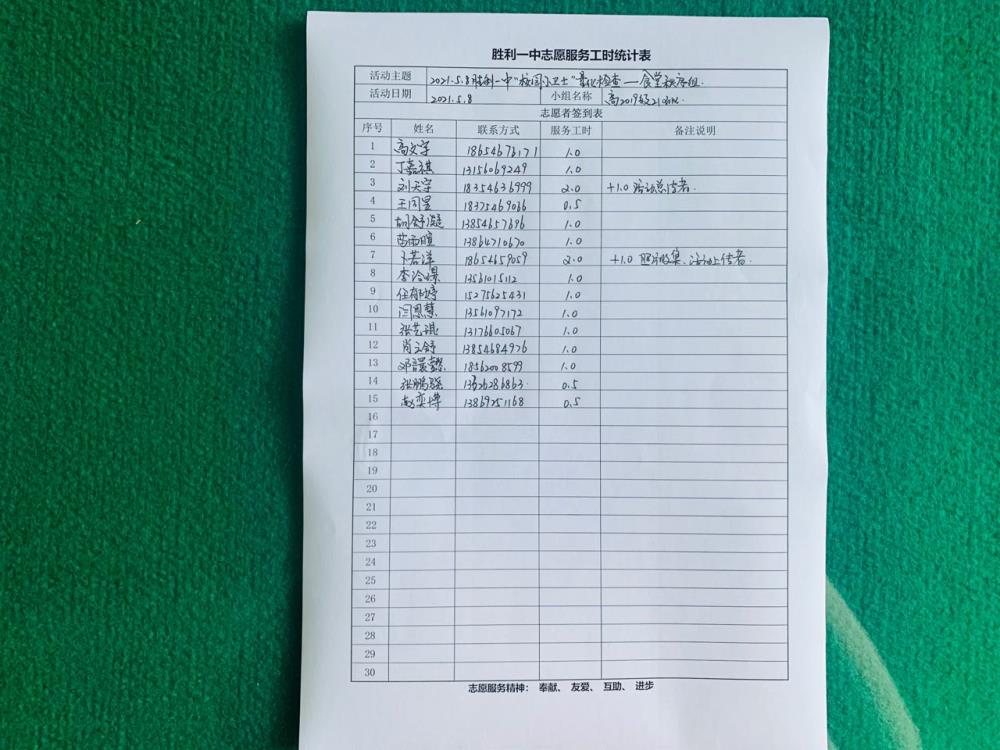 胜利一中志愿服务工时统计表
活动主题 2021.5.8胜利一中"校园小卫士"量化检查—食堂秩序组.
活动日期 2021.5.8 小组名称 高2019级
志愿者签到表
序号 姓名 联系方式 服务工时 备注说明
1 高文字 18654676171 1.0
2 丁嘉祺 13156069249 1.0
3 刘天宇 18354636999 2.0 +1.0 活动总结者.
4 王同星 18375469066 0.5
5 胡舒凝 13854657696 1.0
6 苗雨暄 13864710670 1.0
7 卜若洋 18654659059 2.0 +1.0 照片收集、活动上传者.
8 李冷 13561015112 1.0
9 任 15275625431 1.0
10 闫恩慧 13561097172 1.0
11 张艺琪 13176605067 1.0
12 肖文舒 13854684976 1.0
13 邓 18562008599 1.0
14 张鹏瑶 13626286863 0.5
15 赵奕博 13869251168 0.5
16
17
18
19
20
21
22
23
24
25
26
27
28
29
30
志愿服务精神： 奉献、 友爱、 互助、 进步